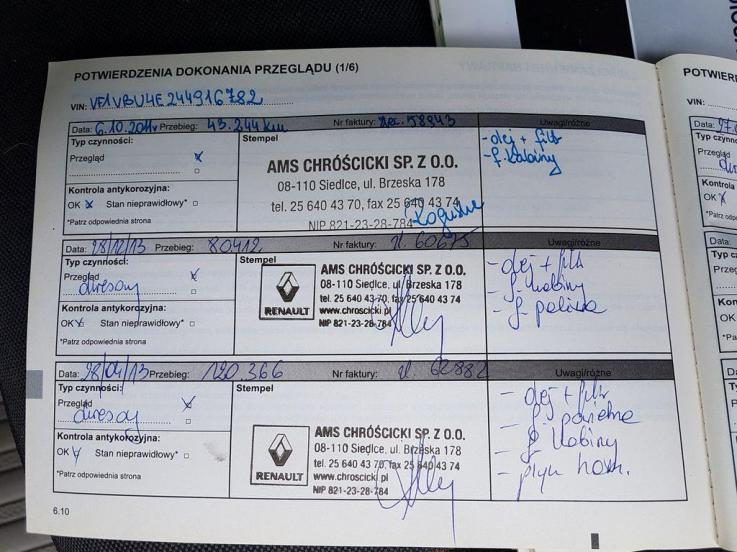 POTWIERDZENIA DOKONANIA PRZEGLĄDU (1/6)
VIN: VF1VBU4E244916782
Data: 6.10.2011r Przebieg: 43.244 km Nr faktury: 58943 Uwagi/różne
Typ czynności:
Przegląd x
Kontrola antykorozyjna:
OK x Stan nieprawidłowy* □
*Patrz odpowiednia strona
Stempel
AMS CHRÓŚCICKI SP. Z O.O.
08-110 Siedlce, ul. Brzeska 178
tel. 25 640 43 70, fax 25 640 43 74
NIP 821-23-28-784
- olej + filtr
- f. kabiny
Data: 28/12/13 Przebieg: 80412 Nr faktury: 60675 Uwagi/różne
Typ czynności:
Przegląd x
okresowy
Kontrola antykorozyjna:
OK Stan nieprawidłowy* □
*Patrz odpowiednia strona
Stempel
RENAULT
AMS CHRÓŚCICKI SP. Z O.O.
08-110 Siedlce, ul. Brzeska 178
tel. 25 640 43 70, fax 25 640 43 74
www.chroscicki.pl
NIP 821-23-28-784
- olej + filtr
- f. kabiny
- f. paliwa
Data: Przebieg: 120.366 Nr faktury: 62882 Uwagi/różne
Typ czynności:
Przegląd x
okresowy
Kontrola antykorozyjna:
OK Stan nieprawidłowy* □
*Patrz odpowiednia strona
Stempel
RENAULT
AMS CHRÓŚCICKI SP. Z O.O.
08-110 Siedlce, ul. Brzeska 178
tel. 25 640 43 70, fax 25 640 43 74
www.chroscicki.pl
NIP 821-23-28-784
- olej + filtr
- f. powietrza
- f. kabiny
- płyn ham.
6.10
POTWIERD
VIN:
Data:
Typ czynn
Przegląd
Kontrola
OK
*Patrz odp